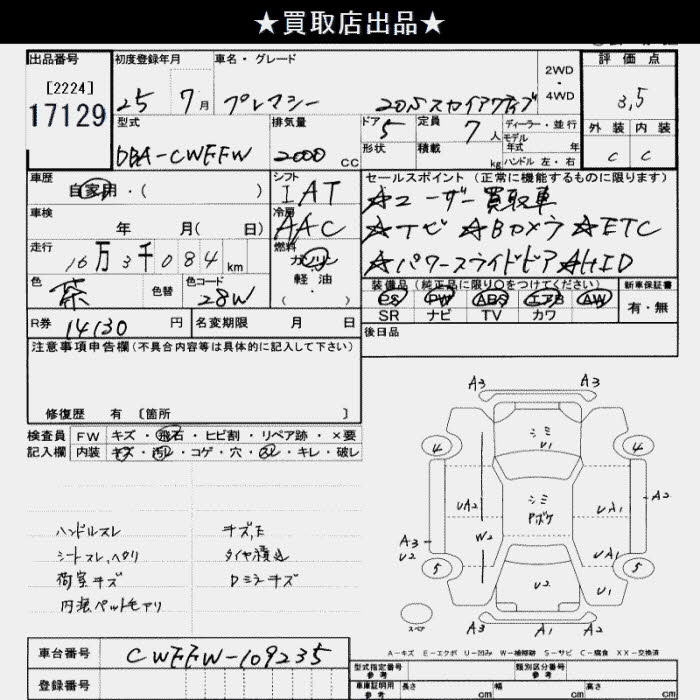 ★買取店出品★
出品番号 初度登録年月 車名・グレード 2WD・4WD 評価点
[2224]
17129
25 7月 プレマシー 20Sスカイアクティブ 3,5
型式 排気量 ドア 5 定員 7人 ディーラー・並行 外装 内装
DBA-CWEFFW 2000 CC 形状 積載 kg モデル年式 年 C C
ハンドル 左・右
車歴 自家用・( ) シフト IAT セールスポイント (正常に機能するものに限ります)
☆ユーザー買取車
車検 年 月( 日) 冷房 AAC ☆TV ☆Bカメラ ☆ETC
走行 16万3千084km 燃料 ガソリン・軽油・( ) ☆パワースライドドア ☆HID
色 茶 色替 色コード 28W 装備品 (純正品に限り○をつけてください) 新車保証書
PS PW ABS エアB AW 有・無
SR ナビ TV カワ
R券 14130円 名変期限 月 日 後日品
注意事項申告欄(不具合内容等は具体的に記入して下さい)
修復歴 有 〔箇所 〕
検査員 FW キズ・飛石・ヒビ割・リペア跡・×要
記入欄 内装 キズ・汚レ・コゲ・穴・スレ・キレ・破レ
ハンドルスレ
シートスレ,ヘタリ タイヤ積込
荷室キズ Dミラーキズ
内装ペットモアリ
A3 A3
シミ
U1
4 4
UA2 シミ UA1 A2
Aボケ
A3 U2 W2 UA1
5 5
U2 U1
スペア A3 A1 A2
A-キズ E-エクボ U-凹み W-補修跡 S-サビ C-腐食 XX-交換済
車台番号 CWEFFW-109235 型式指定番号 参考 類別区分番号 参考
登録番号 車庫証明用 参考 長さ cm 幅 cm 高さ cm